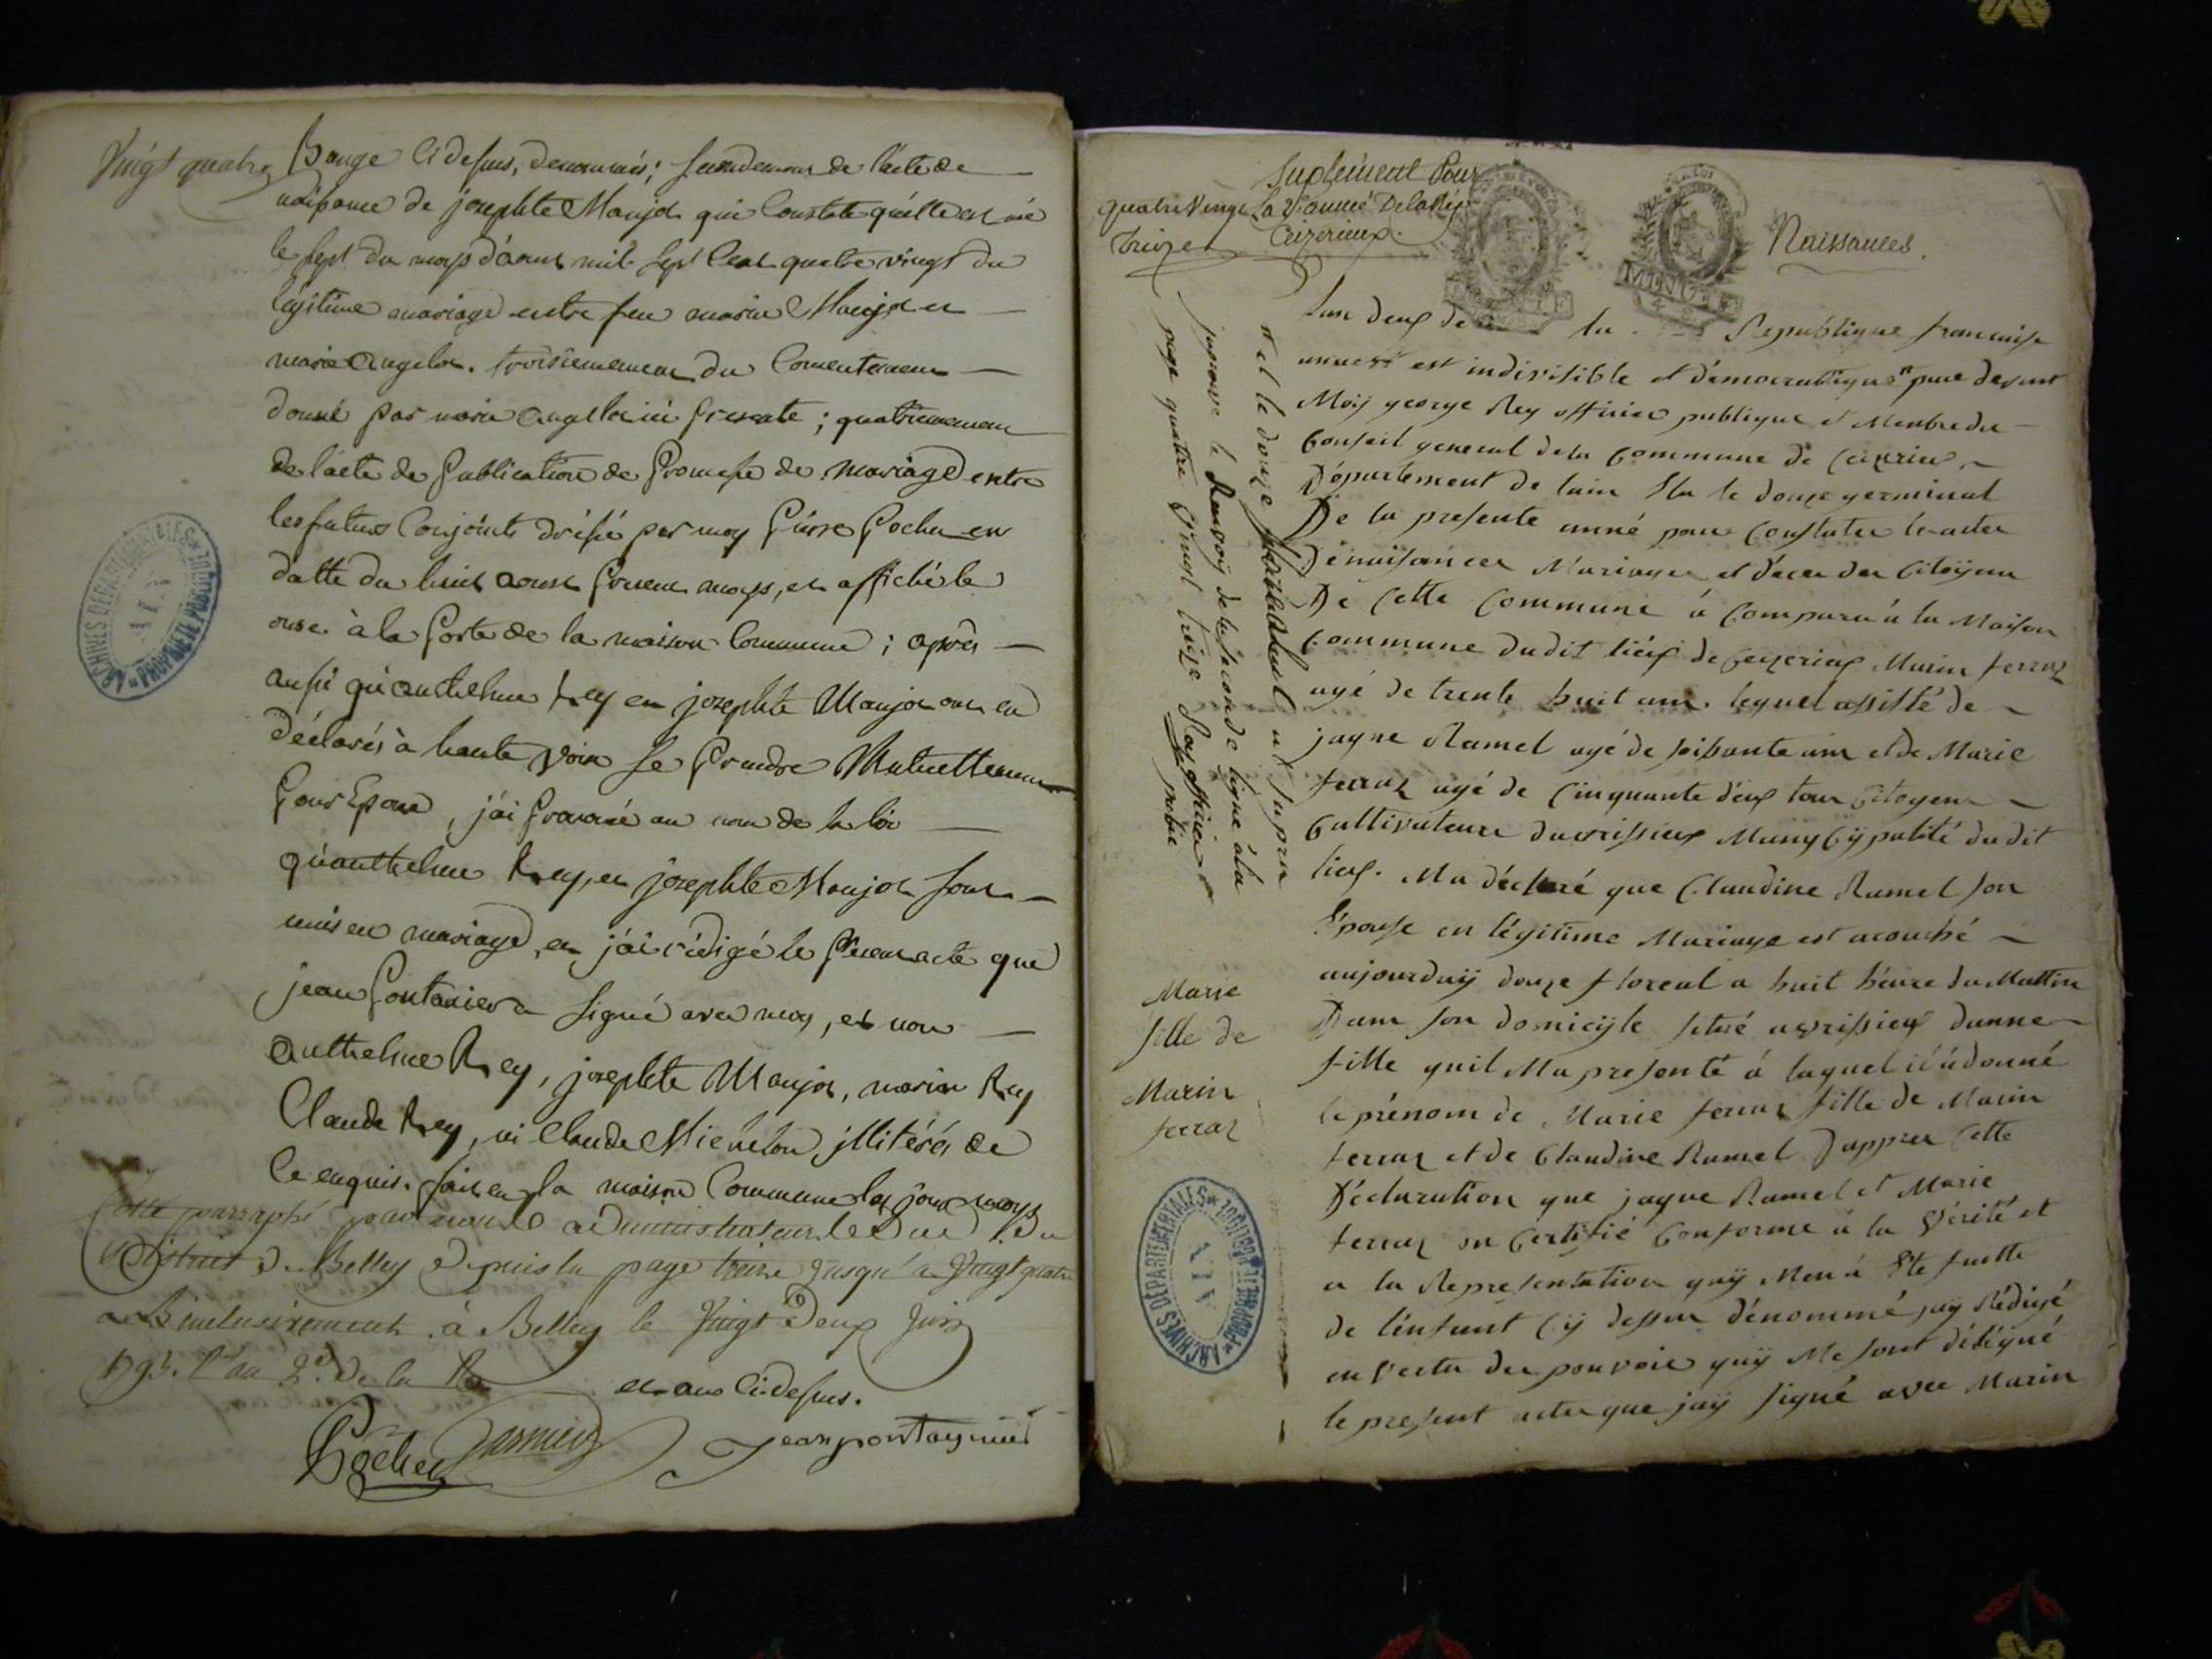 Vingt quatre
Bauge Cidesus, denommés; secondemens de l'acte de
naissance de josephte Maujot qui Constate quelle est née
le sept du moys d'aoust mil sept Cent quatre vingt du
légitime mariage entre feu marin Maujot et
marie Angelot. troisiemement du Consentement
donné par marie Angelot ici presente; quatriemement
de l'acte de Publication de Promesse de mariage entre
les futurs Conjoints dréssé par moy Pierre Cochet en
datte du huit aoust present moys, et affiché le
onse à la Porte de la maison Commune; après
aussi qu'Anthelme Rey et josephte Maujot ont eu
déclarés à haute voix se Prendre Mutuellement
Pour Epoux, j'ai prononcé au nom de la loi
qu'anthelme Rey, et josephte Maujot sont
unis en mariage, et j'ai rédigé le Présent acte que
jean Pontanier a signé avec moy, et non
Anthelme Rey, josephte Maujot, marin Rey
Claude Rey, ni Claude Michelon, illitérés de
ce enquis. fait en la maison Commune les jour moys
Cotté parraphé par nous administrateur du
District de Belley depuis la page treize jusqu'a Vingt quatre
inclusivement. à Belley le Vingt Deux Juin
1793. l'an 2e. de la
et ans Cidesus.
Cochet
Jean pontaynier
Suplément Pour
La 2e année De la Rép
Ceizerieux.
quatre Vingt
treize
Naissances.
MINUTE
MINUTE
Lan deux de la Republique francaise
unne est indivisible et démocratique pare devant
Moÿ george Rey officier publique et Membre du
Conseil general de la Commune de Ceizerieu
Département de lain Elu le douze germinal
De la presente anné pour Constater les actes
De naisances Mariages et déces des Citoÿens
De Cette Commune à Comparu à la Maison
Commune dudit lieux de Ceizerieux Marin ferraz
agé de trente huit ans. lequel assisté de
jaque Ramel agé de soixante ans et de Marie
ferraz agé de Cinquante deux tous Citoyens
Cultivateurs Municÿpalité dudit
lieux. Ma déclaré que Claudine Ramel son
Épouse en légitime Mariage est acouché
aujourduÿ douze floreal a huit heure du Mattin
Dans son domicÿle situé dunne
fille quil Ma presenté à laquel il à donné
le prénom de Marie ferraz fille de Marin
ferraz et de Claudine Ramel Dappres Cette
Déclaration que jaque Ramel et Marie
ferraz on Certifié Conforme à la Vérité et
a la Representation quÿ Men à Eté faitte
de lénfant Cÿ dessus dénommé jaÿ Rédigé
en Vertu des pouvoir quÿ Me sont délégué
le present actes que jaÿ signé avec Marin
et le douze
japrouve le Renvoÿ de la seconde ligne à la
page quatre Vingt treize Rey officier
public
Marie
fille de
Marin
ferraz
ARCHIVES DÉPARTEMENTALES
AIN
PROPRIÉTÉ PUBLIQUE
ARCHIVES DÉPARTEMENTALES
AIN
PROPRIÉTÉ PUBLIQUE